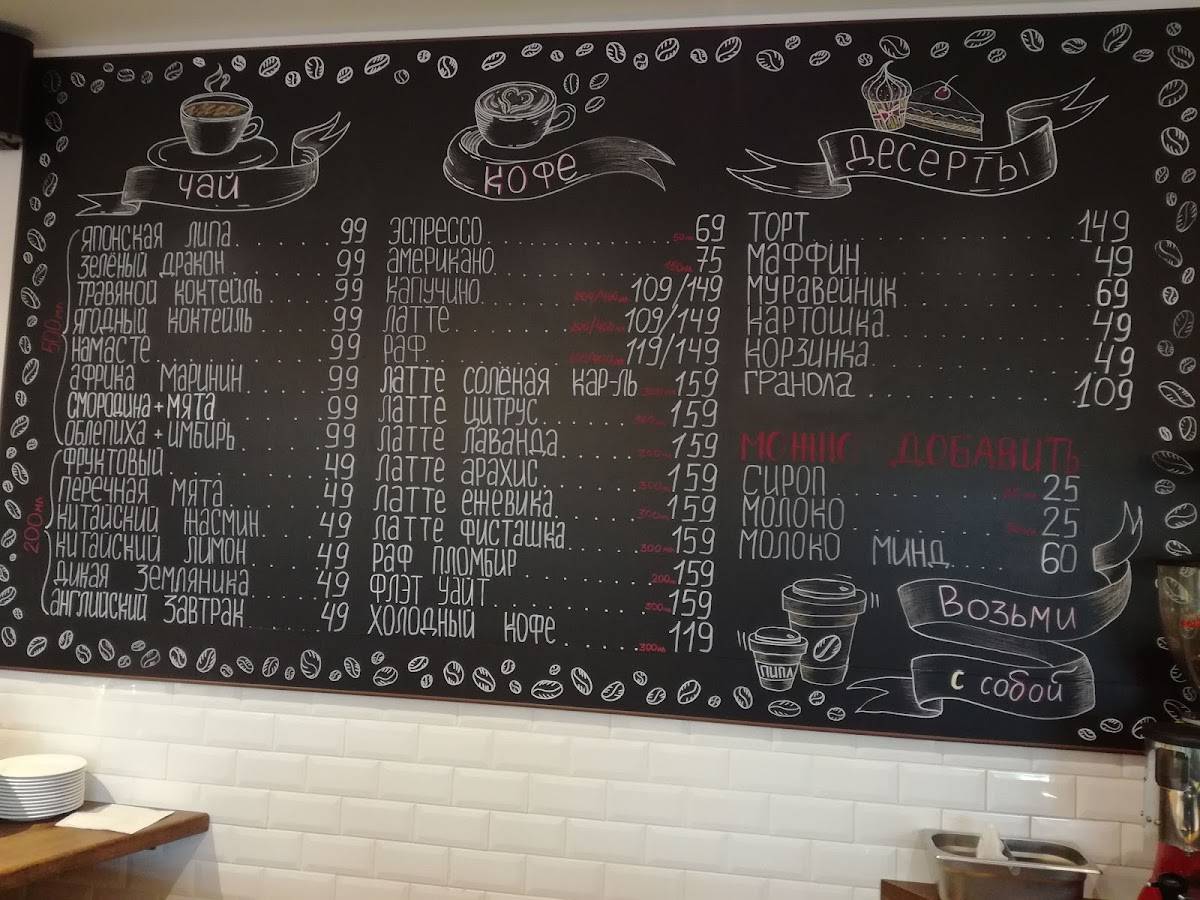 ЧАЙ
500 мл
ЯПОНСКАЯ ЛИПА 99
ЗЕЛЁНЫЙ ДРАКОН 99
ТРАВЯНОЙ КОКТЕЙЛЬ 99
ЯГОДНЫЙ КОКТЕЙЛЬ 99
НАМАСТЕ 99
АФРИКА МАРИНИН 99
СМОРОДИНА + МЯТА 99
ОБЛЕПИХА + ИМБИРЬ 99
200 мл
ФРУКТОВЫЙ 49
ПЕРЕЧНАЯ МЯТА 49
КИТАЙСКИЙ ЖАСМИН 49
КИТАЙСКИЙ ЛИМОН 49
ДИКАЯ ЗЕМЛЯНИКА 49
АНГЛИЙСКИЙ ЗАВТРАК 49
КОФЕ
ЭСПРЕССО 69
АМЕРИКАНО 150мл 75
КАПУЧИНО 109/149
ЛАТТЕ 109/149
РАФ 119/149
ЛАТТЕ СОЛЁНАЯ КАР-ЛЬ 159
ЛАТТЕ ЦИТРУС 159
ЛАТТЕ ЛАВАНДА 159
ЛАТТЕ АРАХИС 300мл 159
ЛАТТЕ ЕЖЕВИКА 300мл 159
ЛАТТЕ ФИСТАШКА 300мл 159
РАФ ПЛОМБИР 200мл 159
ФЛЭТ УАЙТ 300мл 159
ХОЛОДНЫЙ КОФЕ 300мл 119
ДЕСЕРТЫ
ТОРТ 149
МАФФИН 49
МУРАВЕЙНИК 69
КАРТОШКА 49
КОРЗИНКА 49
ГРАНОЛА 109
МОЖНО ДОБАВИТЬ
СИРОП 25
МОЛОКО 25
МОЛОКО МИНД 60
ПИПЛ
ВОЗЬМИ
С СОБОЙ